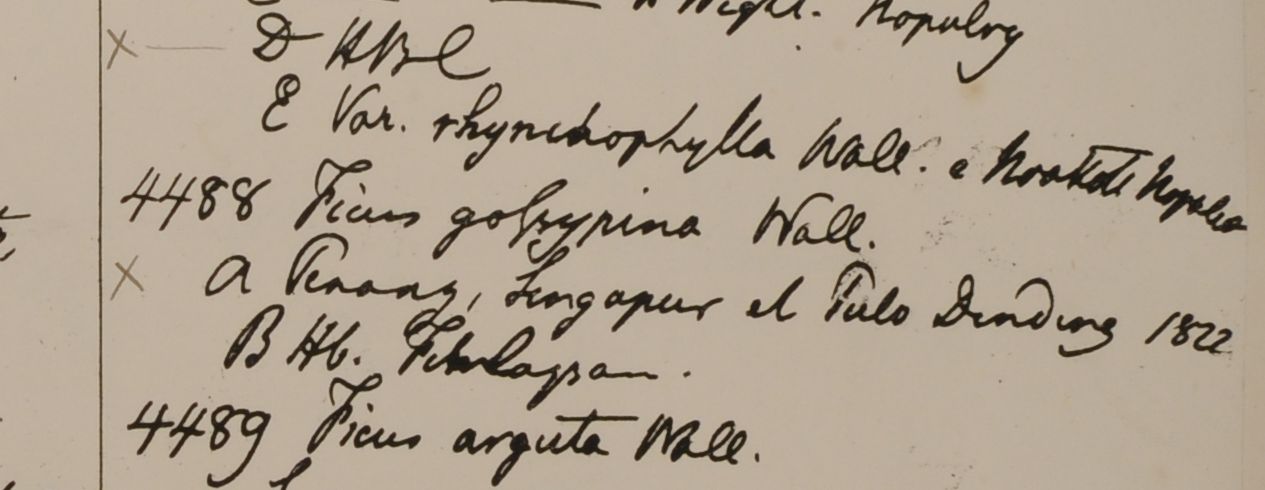 Wight.
× D HBC
E Var. rhynchophylla Wall. e Noakote Nepalia
4488 Ficus gossypina Wall.
× a Penang, Singapur et Pulo Dinding 1822
B Hb. Finlayson.
4489 Ficus arguta Wall.